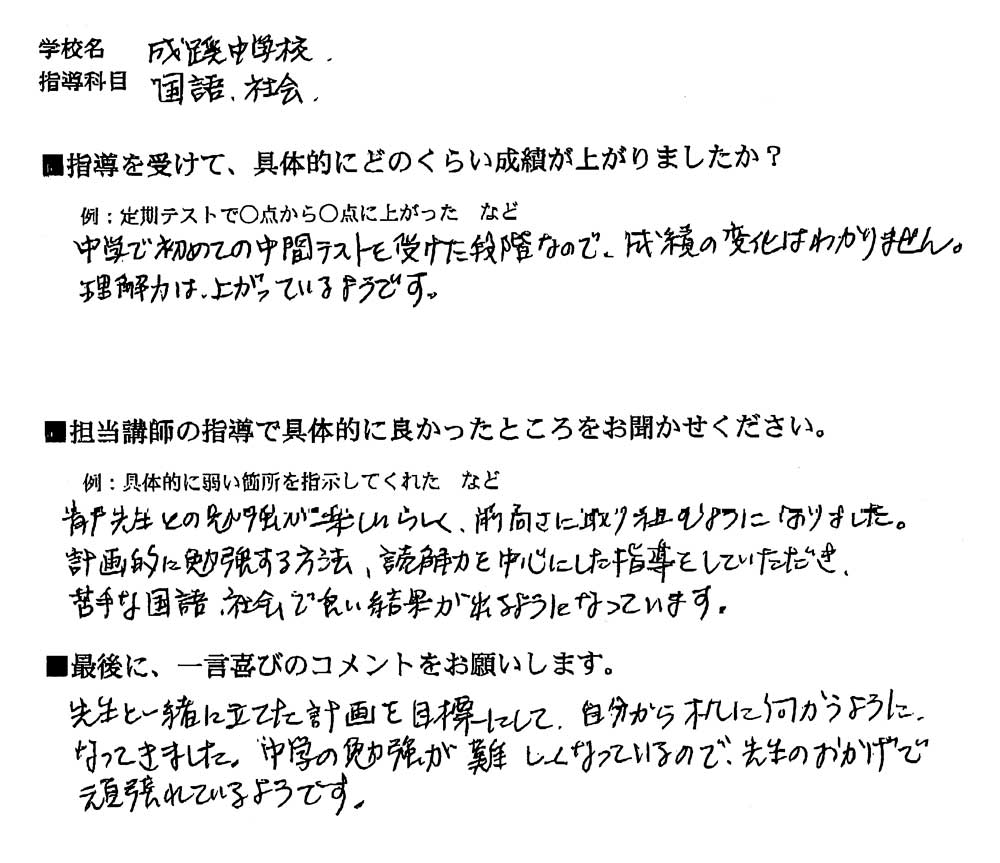 学校名 成蹊中学校.
指導科目 国語、社会.
■指導を受けて、具体的にどのくらい成績が上がりましたか？
例：定期テストで〇点から〇点に上がった など
中学で初めての中間テストを受けた段階なので、成績の変化はわかりません。
理解力は、上がっているようです。
■担当講師の指導で具体的に良かったところをお聞かせください。
例：具体的に弱い箇所を指示してくれた など
青戸先生との勉強が楽しいらしく、前向きに取り組むようになりました。
計画的に勉強する方法、読解力を中心にした指導をしていただき、
苦手な国語、社会で良い結果が出るようになっています。
■最後に、一言喜びのコメントをお願いします。
先生と一緒に立てた計画を目標にして、自分から机に向かうように、
なってきました。中学の勉強が難しくなっているので、先生のおかげで
頑張れているようです。